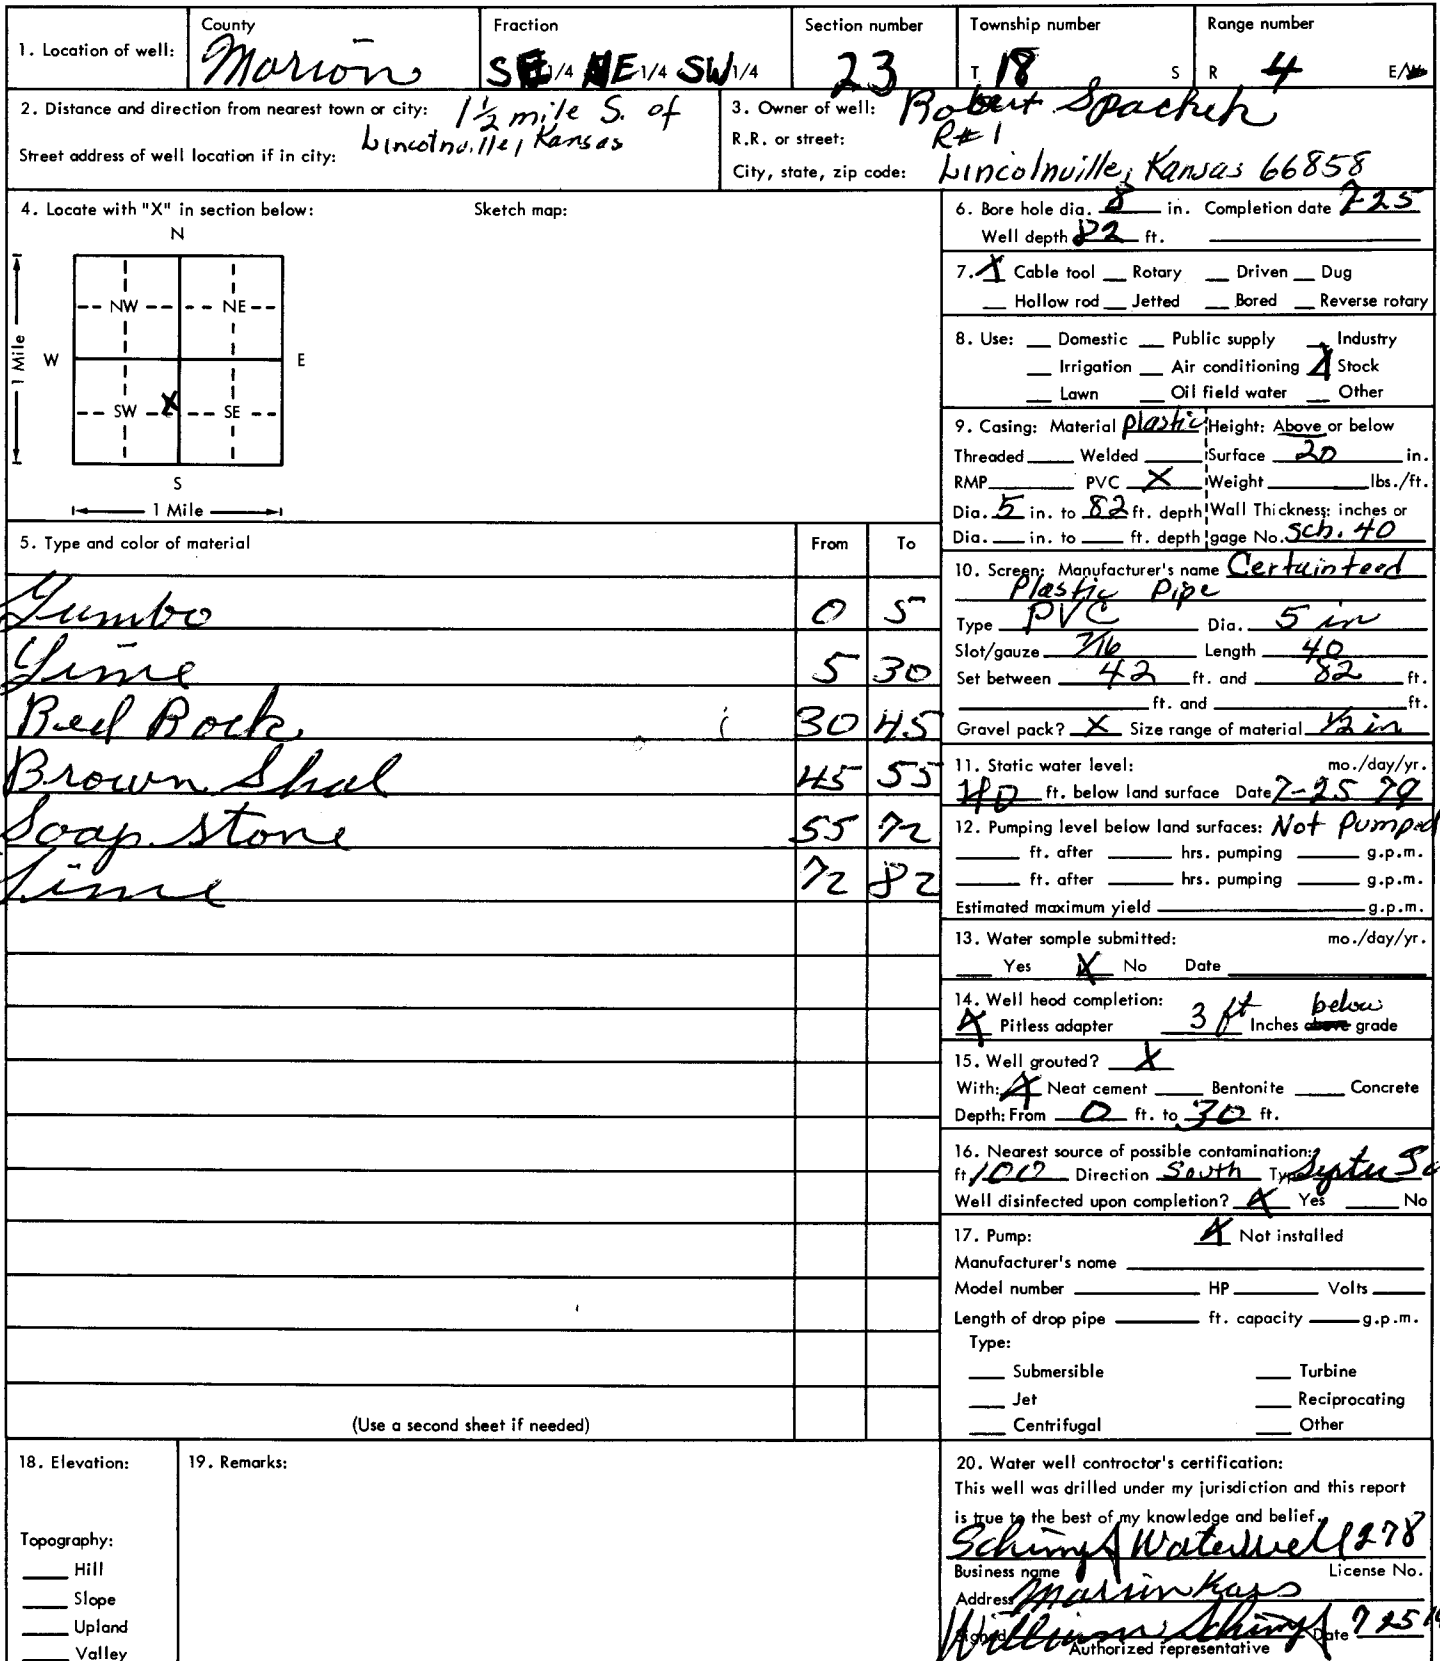 County Fraction Section number Township number Range number
1. Location of well: Marion SE 1/4 NE 1/4 SW 1/4 23 T 18 S R 4 E/W
2. Distance and direction from nearest town or city: 1 1/2 mile S. of
Lincolnville, Kansas
Street address of well location if in city:
3. Owner of well: Robert
R.R. or street: R#1
City, state, zip code: Lincolnville, Kansas 66858
4. Locate with "X" in section below: Sketch map:
N
NW NE
1 Mile W E
X
SW SE
S
1 Mile
5. Type and color of material From To
Gumbo 0 5
Lime 5 30
Red Rock 30 45
Brown Shal 45 55
Soap stone 55 72
Lime 72 82
(Use a second sheet if needed)
6. Bore hole dia. 8 in. Completion date 7-25
Well depth 82 ft.
7. X Cable tool __ Rotary __ Driven __ Dug
__ Hollow rod __ Jetted __ Bored __ Reverse rotary
8. Use: __ Domestic __ Public supply __ Industry
__ Irrigation __ Air conditioning X Stock
__ Lawn __ Oil field water __ Other
9. Casing: Material plastic Height: Above or below
Threaded ____ Welded ____ Surface 20 in.
RMP ____ PVC X Weight ____ lbs./ft.
Dia. 5 in. to 82 ft. depth Wall Thickness: inches or
Dia. ___ in. to ___ ft. depth gage No. Sch. 40
10. Screen: Manufacturer's name Certainteed
Plastic Pipe
Type PVC Dia. 5 in
Slot/gauze 7/16 Length 40
Set between 42 ft. and 82 ft.
____ ft. and ____ ft.
Gravel pack? X Size range of material 1/2 in
11. Static water level: mo./day/yr.
40 ft. below land surface Date 7-25 79
12. Pumping level below land surfaces: Not Pumped
____ ft. after ____ hrs. pumping ____ g.p.m.
____ ft. after ____ hrs. pumping ____ g.p.m.
Estimated maximum yield ____ g.p.m.
13. Water sample submitted: mo./day/yr.
___ Yes X No Date ____
14. Well head completion: below
X Pitless adapter 3 ft Inches above grade
15. Well grouted? X
With: X Neat cement ___ Bentonite ___ Concrete
Depth: From 0 ft. to 30 ft.
16. Nearest source of possible contamination:
ft. 100 Direction South Type
Well disinfected upon completion? X Yes ___ No
17. Pump: X Not installed
Manufacturer's name ____
Model number ____ HP ____ Volts ____
Length of drop pipe ____ ft. capacity ____ g.p.m.
Type:
___ Submersible ___ Turbine
___ Jet ___ Reciprocating
___ Centrifugal ___ Other
18. Elevation:
Topography:
___ Hill
___ Slope
___ Upland
___ Valley
19. Remarks:
20. Water well contractor's certification:
This well was drilled under my jurisdiction and this report
is true to the best of my knowledge and belief.
Schimpf Waterwell 278
Business name License No.
Address Marion Kans
Signed William Schimpf Date 7 25
Authorized representative